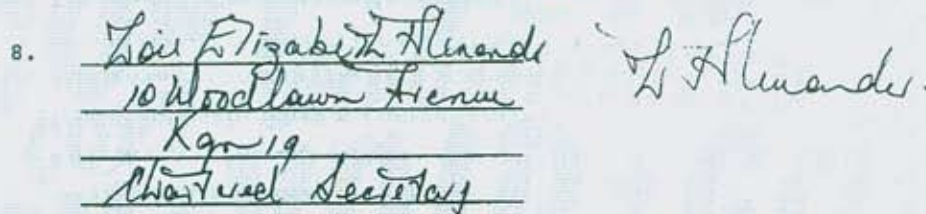 8. Lois Elizabeth Alexander
10 Woodlawn Avenue
Kgn 19
Chartered Secretary
L Alexander.